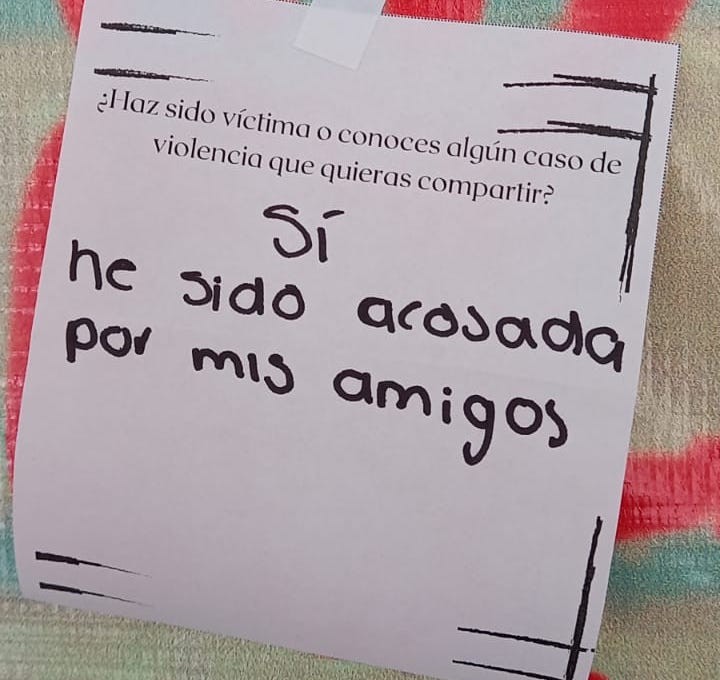 ¿Haz sido víctima o conoces algún caso de
violencia que quieras compartir?
Sí
he sido acosada
por mis amigos